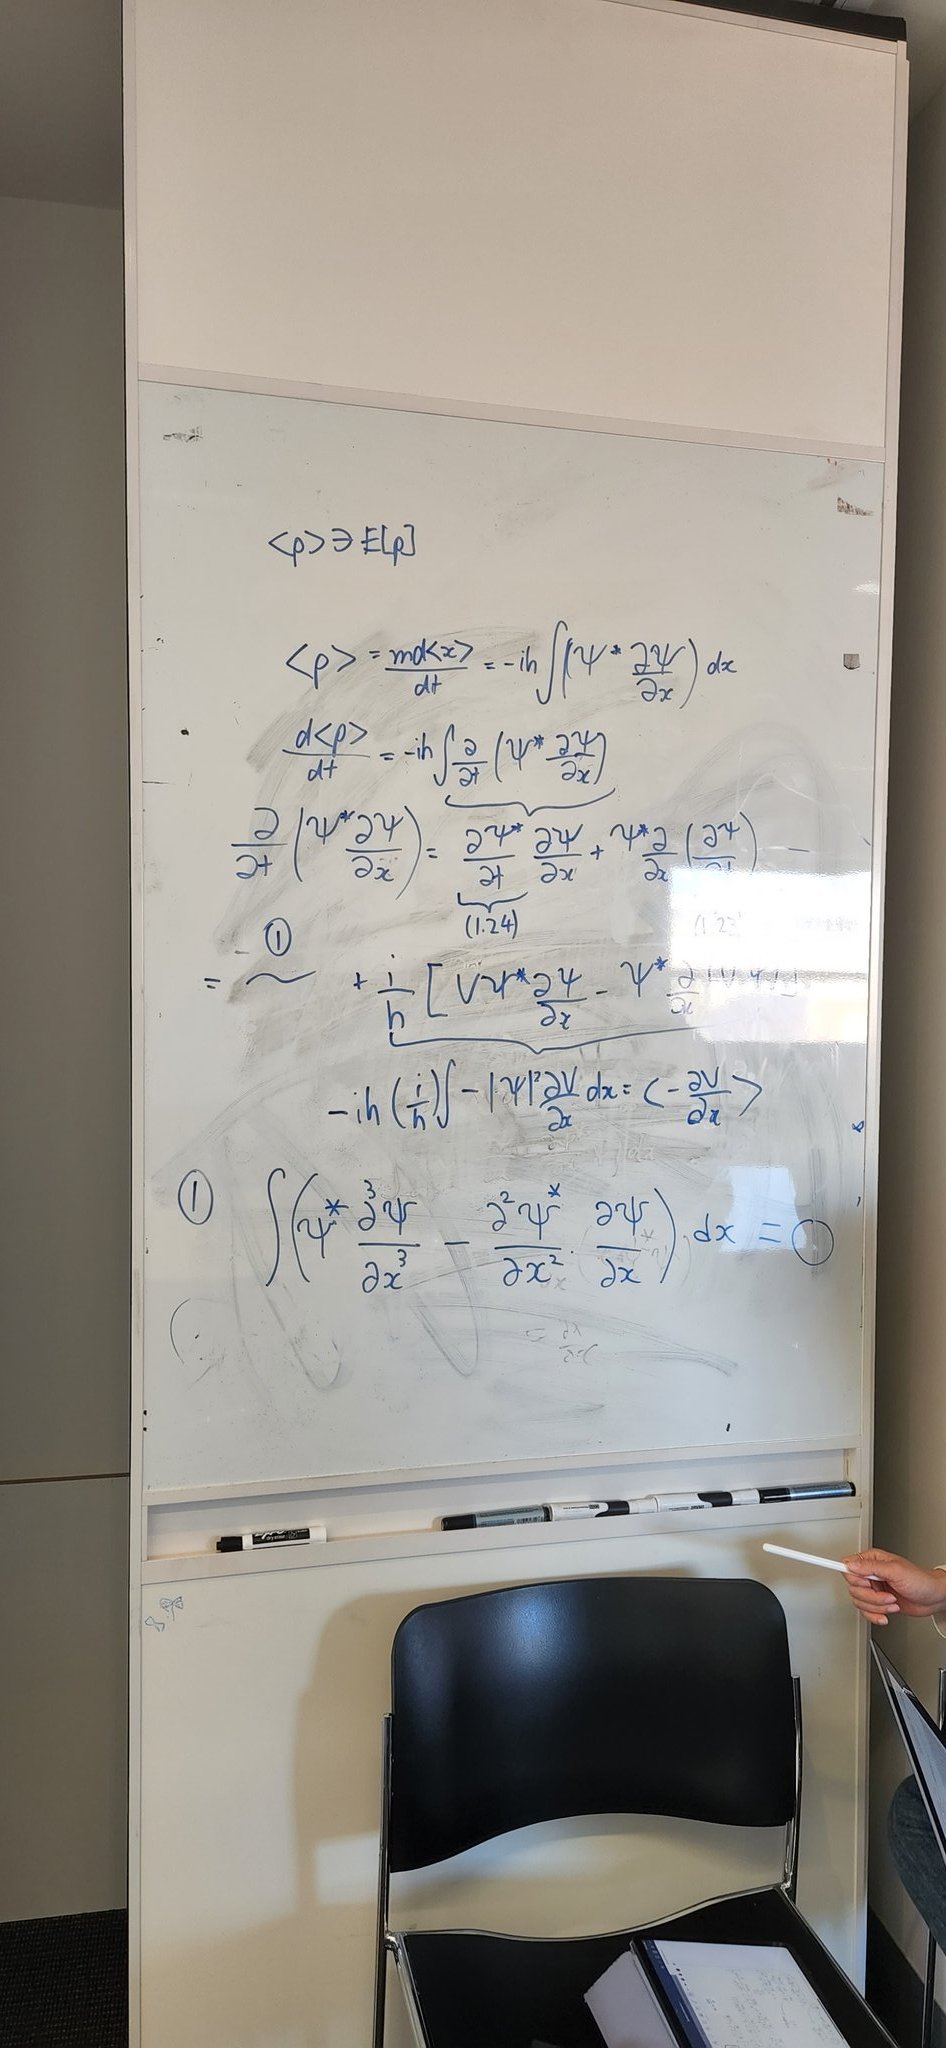 <p> ∋ E[p]
<p> = md<x>/dt = -iħ ∫(Ψ* ∂Ψ/∂x) dx
d<p>/dt = -iħ ∫ ∂/∂t (Ψ* ∂Ψ/∂x)
∂/∂t (Ψ* ∂Ψ/∂x) = ∂Ψ*/∂t ∂Ψ/∂x + Ψ* ∂/∂x (∂Ψ/∂t)
(1.24) (1.23)
①
= ~ + i/ħ [VΨ* ∂Ψ/∂x - Ψ* ∂/∂x (VΨ)]
-iħ (i/ħ) ∫ -|Ψ|² ∂V/∂x dx = <-∂V/∂x>
① ∫(Ψ* ∂³Ψ/∂x³ - ∂²Ψ*/∂x² · ∂Ψ/∂x) dx = 0